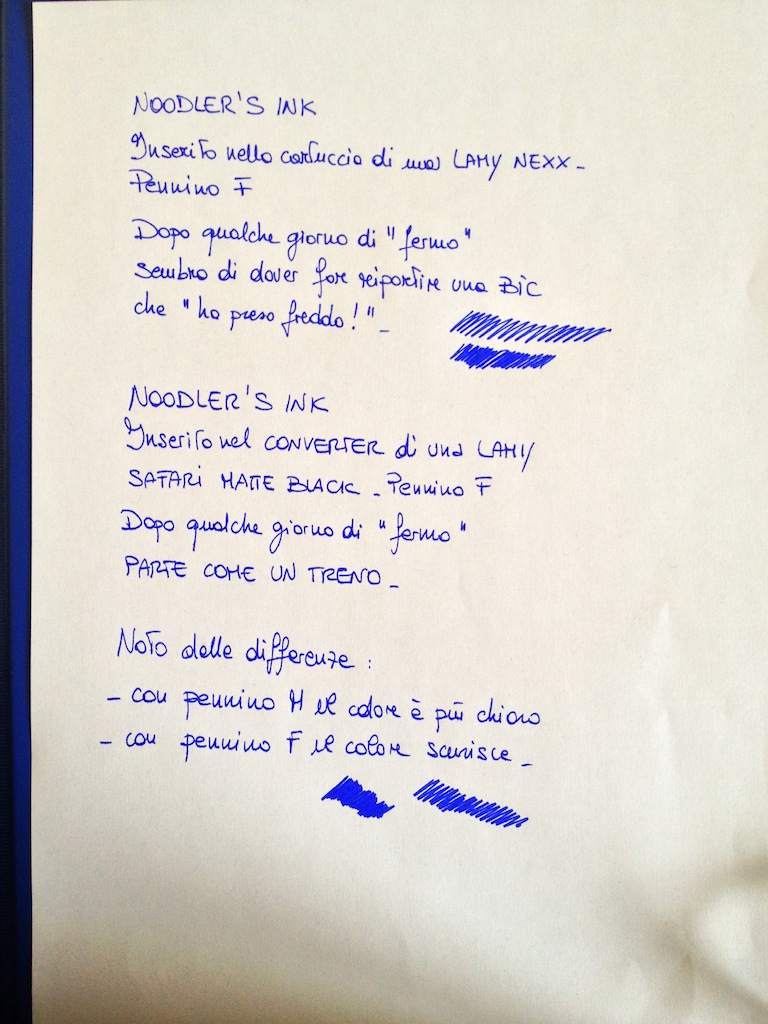 NOODLER'S INK
Inserito nella cartuccia di una LAMY NEXX_
Pennino F
Dopo qualche giorno di "fermo"
sembra di dover fare ripartire una BIC
che "ha preso freddo!"_
NOODLER'S INK
Inserito nel CONVERTER di una LAMY
SAFARI MATTE BLACK _ Pennino F
Dopo qualche giorno di "fermo"
PARTE COME UN TRENO_
Noto delle differenze:
- con pennino M il colore è più chiaro
- con pennino F il colore scurisce_